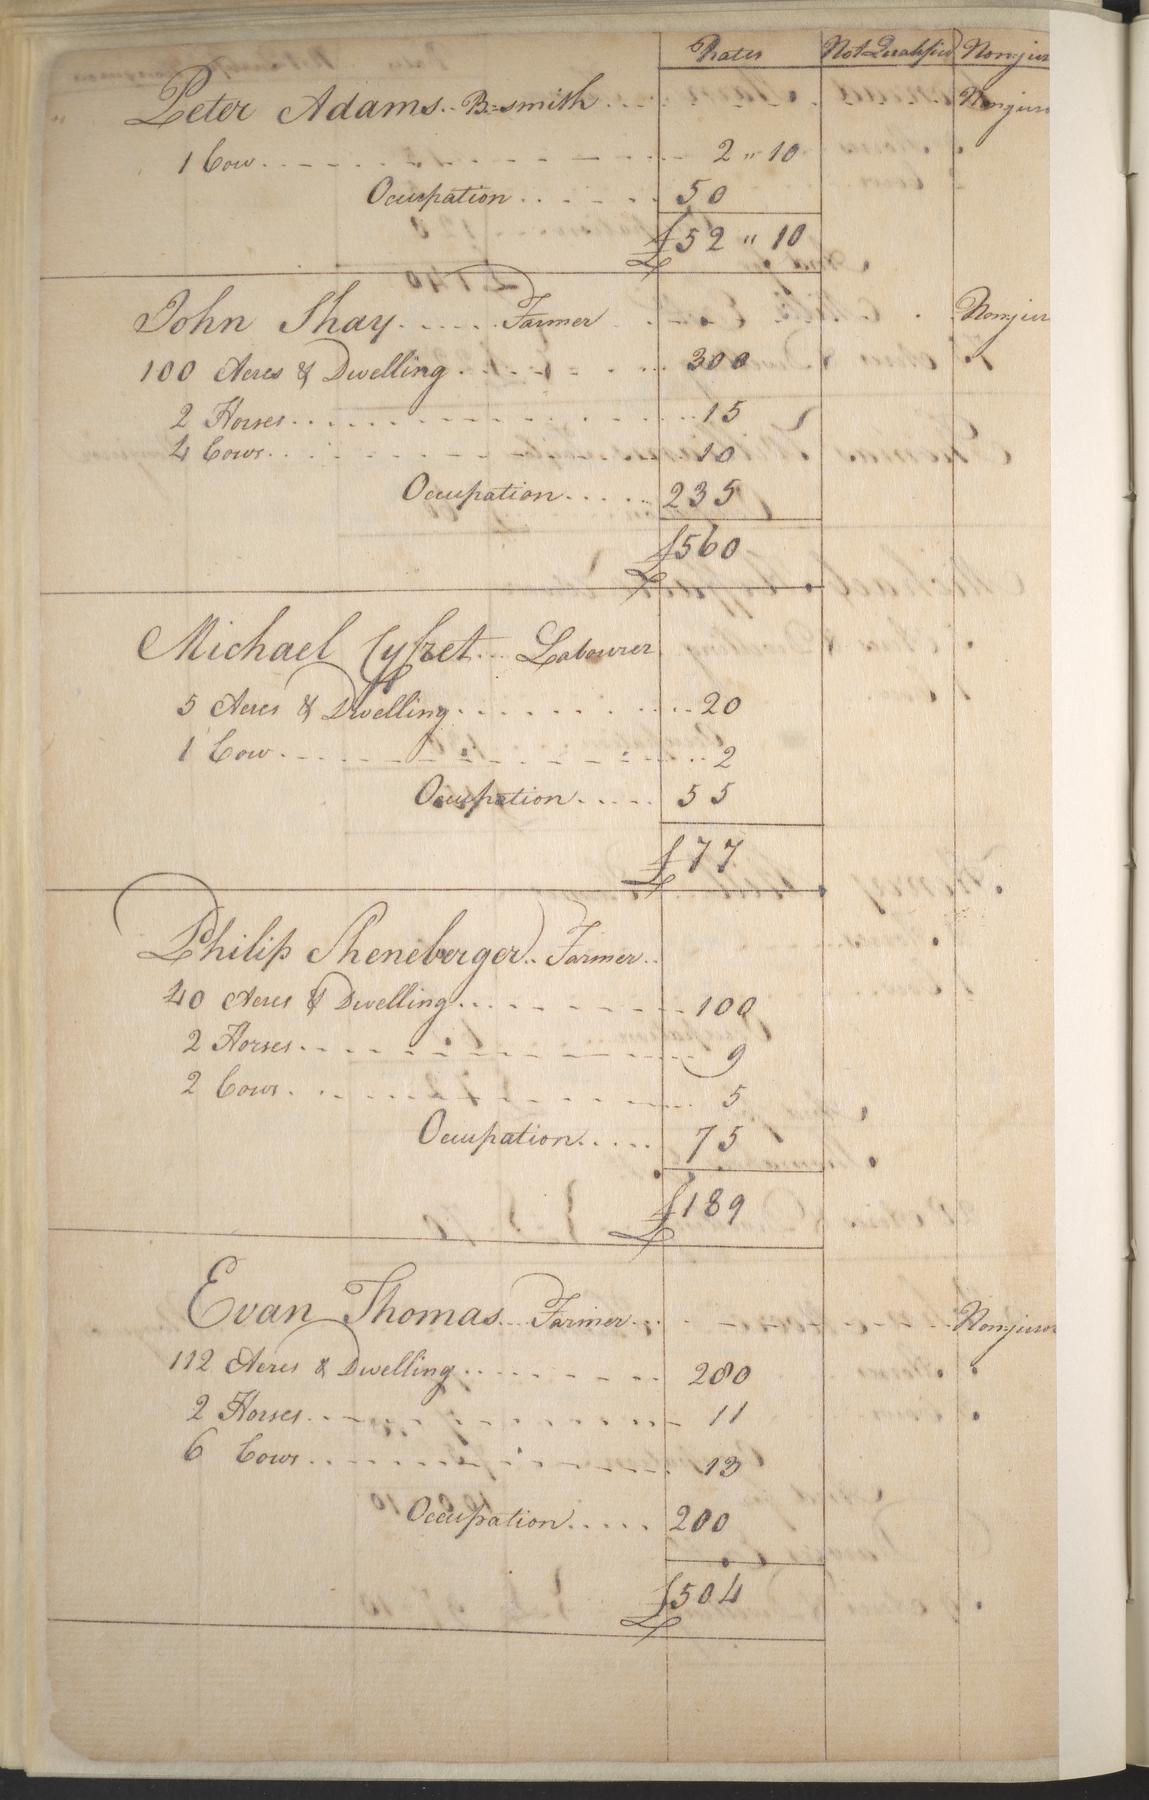 Rates Not Qualified Nonjur
Peter Adams.. B=smith.... Nonjuror
1 Cow. 2 " 10
Occupation...... 50
£52 " 10
John Shay...... Farmer Nonjur
100 Acres & Dwelling.... 300
2 Horses........ 15
4 Cows.... 10
Occupation..... 235
£560
Michael Cyfret... Labourer
5 Acres & Dwelling........ 20
1 Cow.... 2
Occupation..... 55
£77
Philip Sheneberger.. Farmer..
40 Acres & Dwelling.... 100
2 Horses.... 9
2 Cows.... 5
Occupation..... 75
£189
Evan Thomas... Farmer... Nonjuror
112 Acres & Dwelling........ 280
2 Horses.... 11
6 Cows.... 13
Occupation..... 200
£504